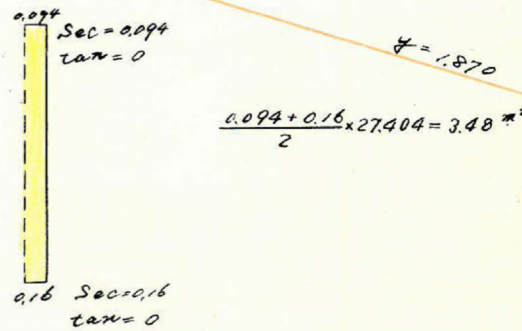 0.094
Sec = 0.094
tan = 0
y = 1.870
0.094 + 0.16
2
x 27.404 = 3.48 m²
0.16 Sec = 0.16
tan = 0